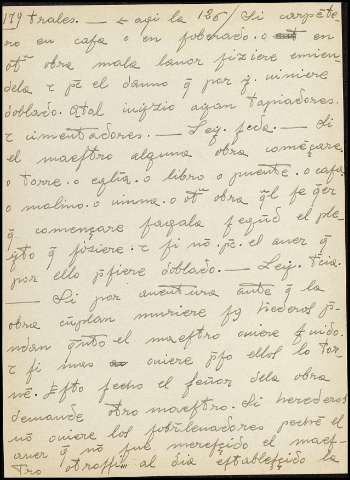 179 trales. — E aqi la 136/ Si carpẽte-
ro en cafa o en foberado. o en
otª obra mala lauor fiziere emien-
dela ⁊ pe el danno q̃ por y. uiniere
doblado. Atal iuyzio ayan tapiadores.
⁊ cimentadores. — Ley. feda. — Si
el maeftro alguna obra começare.
o torre. o eglia. o libro o puente. o cafa
o molino. o uinna. o otª obra q̃l fe q̃er
q̃. començare fagala fegũd el ple-
yto q̃ fiziere. ⁊ fi nõ. pe. el auer q̃
por ello p̃fiere doblado. — Ley. Tcia.
— Si por auentura ante q̃ la
obra cũplan muriere fq herederos
ndan q̃nto el maeftro ouiere fuido.
⁊ fi mas ouiere p̃fo ellos lo tor-
nẽ. Efto fecho el feñor dela obra
demande otro maeftro. Si herederos
nõ ouiere los fobrlenadores pechẽ el
auer q̃ nõ fue merefçido el maef-
tro otroffi al dia eftablefçido la